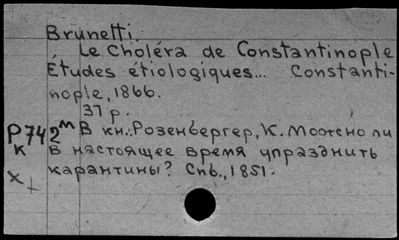 Brunetti.
Le Choléra de Constantinople
Études étiologiques... Constanti-
nople, 1866.
37 p.
P74 2м В кн.: Розенбергер, К. Можно ли
к в настоящее время упразднить
карантины? Спб., 1851.
х